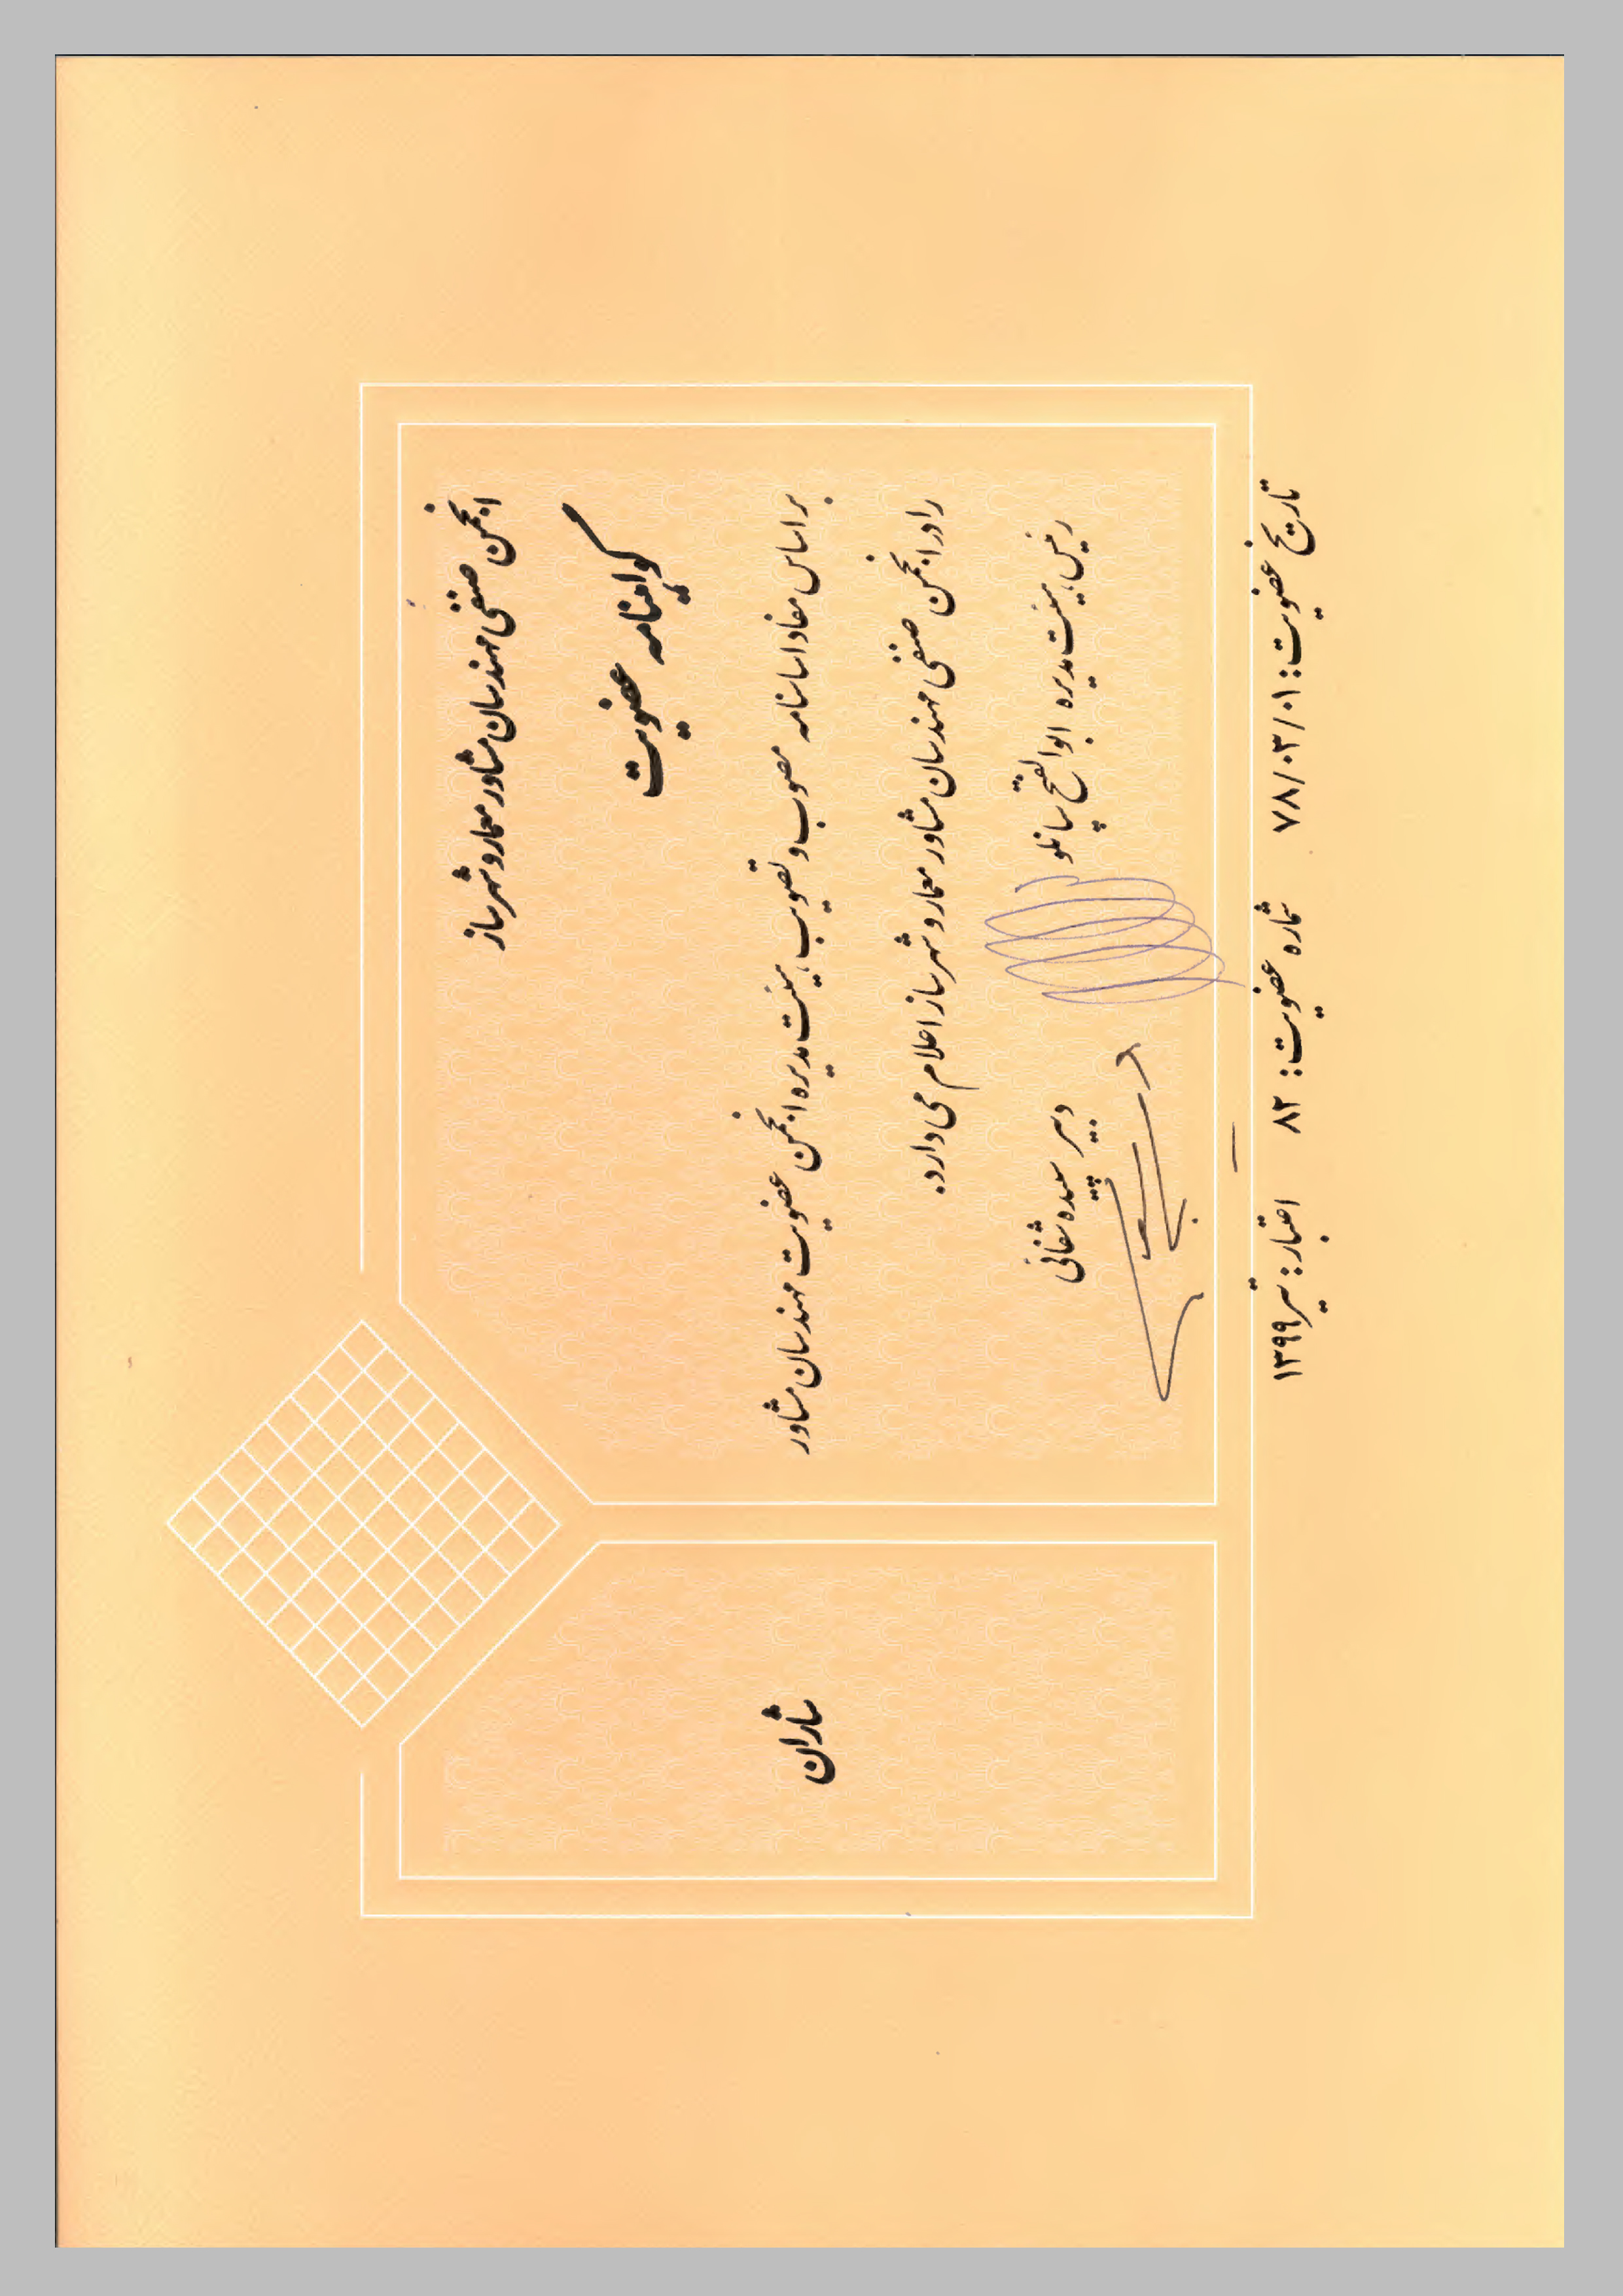 انجمن صنفی مهندسان مشاور معمار و شهرساز
گواهینامه عضویت
بر اساس مفاد اساسنامه مصوب و تصویب هیئت مدیره انجمن عضویت مهندسان مشاور
شاران
را در انجمن صنفی مهندسان مشاور معمار و شهرساز اعلام می دارد.
رئیس هیئت مدیره ابوالفتح سپانلو
دبیر سپیده شفائی
تاریخ عضویت: ۷۸/۰۳/۰۱ شماره عضویت: ۸۲ اعتبار: تیر ۱۳۹۹